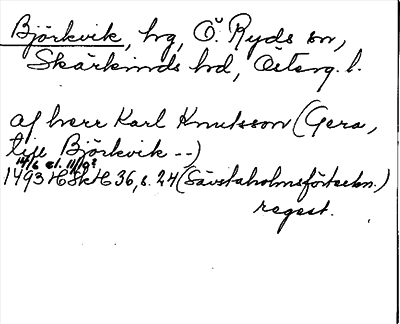 Björkvik, hg, Ö. Ryds sn,
Skärkinds hd, Österg. l.
af herr Karl Knutsson (Gera,
till Björkvik --)
14/6 el. 11/9?
1493 HSkH 36, s. 24 (Sävstaholmsförteckn.)
regest.